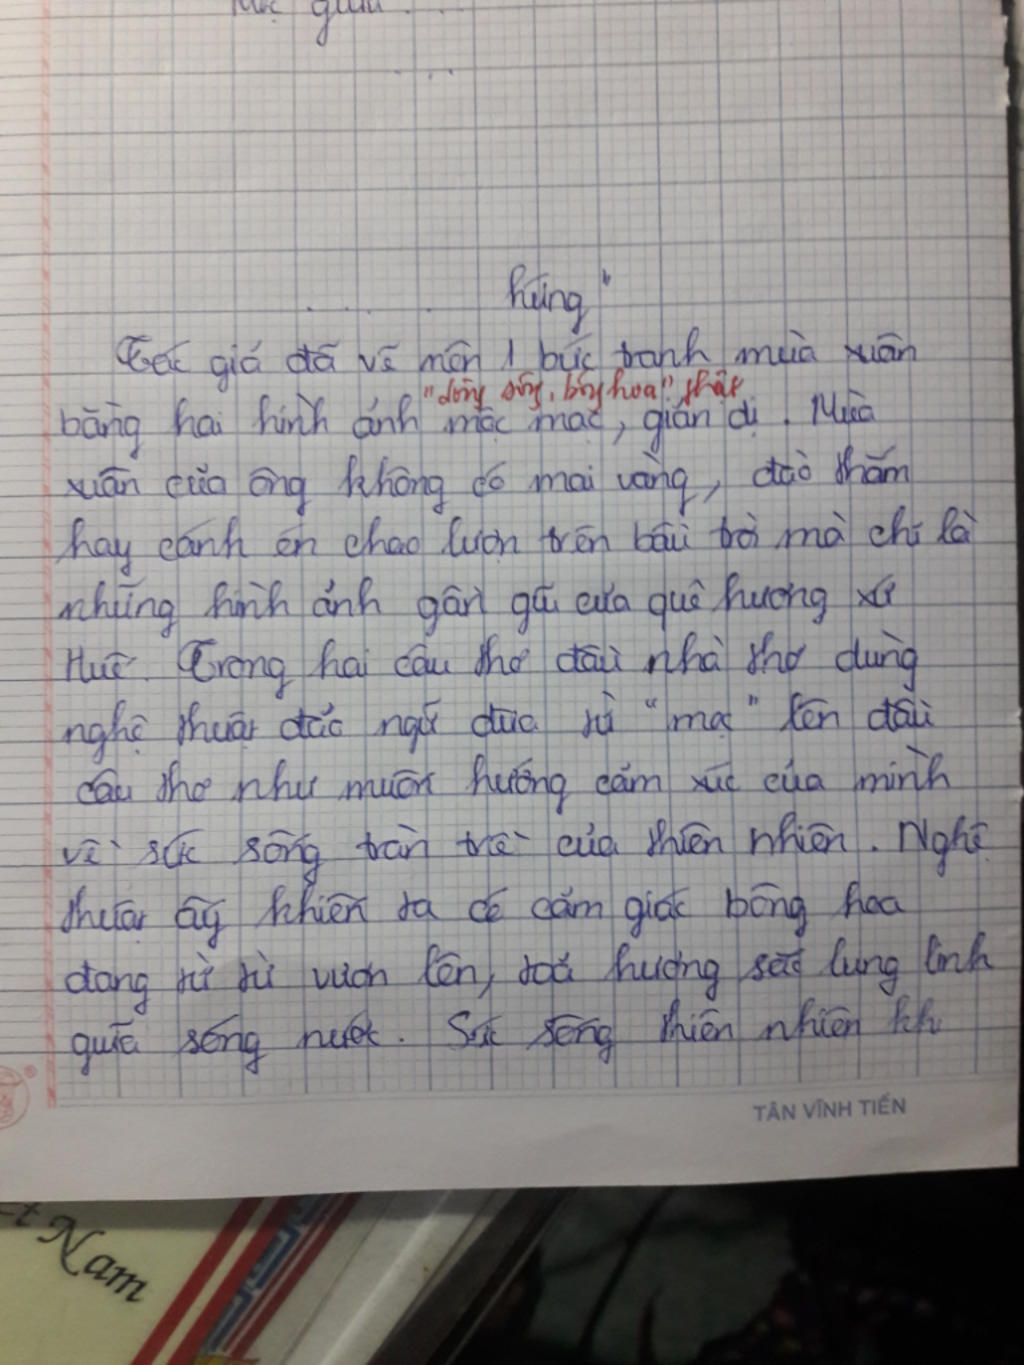 giữa...
. . .
. . . . hứng"
Tác giả đã vẽ nên 1 bức tranh mùa xuân
"dòng sông, bông hoa" thật
bằng hai hình ảnh mộc mạc, giản dị. Mùa
xuân của ông không có mai vàng, đào thắm
hay cánh én chao lượn trên bầu trời mà chỉ là
những hình ảnh gần gũi của quê hương xứ
Huế. Trong hai câu thơ đầu nhà thơ dùng
nghệ thuật đảo ngữ đưa từ "mọc" lên đầu
câu thơ như muốn hướng cảm xúc của mình
về sức sống tràn trề của thiên nhiên. Nghệ
thuật ấy khiến ta có cảm giác bông hoa
đang từ từ vươn lên, toả hương sắc lung linh
giữa sóng nước. Sức sống thiên nhiên kh
TÂN VĨNH TIẾN
Nam